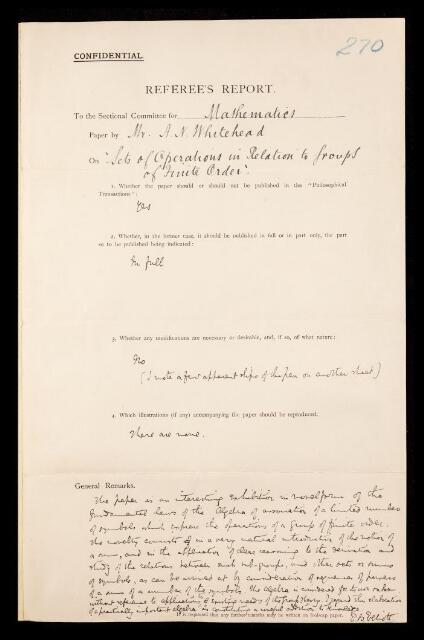 270
CONFIDENTIAL
REFEREE'S REPORT.
To the Sectional Committee for Mathematics
Paper by Mr. A. N. Whitehead
On "Sets of Operations in Relation to Groups
of Finite Order".
1. Whether the paper should or should not be published in the "Philosophical
Transactions":
Yes
2. Whether, in the former case, it should be published in full or in part only, the part
so to be published being indicated:
In full
3. Whether any modifications are necessary or desirable, and, if so, of what nature:
No
(I note a few apparent slips of the pen on another sheet)
4. Which illustrations (if any) accompanying the paper should be reproduced.
There are none.
General Remarks.
The paper is an interesting exhibition in novel form of the
fundamental laws of the Algebra of association of a limited number
of symbols which express the operations of a group of finite order.
The novelty consists of in a very natural introduction of the notion of
a sum, and in the application of clear reasoning to the derivation and
study of the relations between such sub-groups, and other sets or sums
of symbols, as can be arrived at by consideration of sequences of powers
of a sum of a number of the symbols. The algebra is considered for its own sake
without reference to applications to existing needs of the group theory. I regard the elaboration
of a practically important algebra as constituting a useful addition to knowledge.
It is requested that any further remarks may be written on foolscap paper.
E. B. Elliott